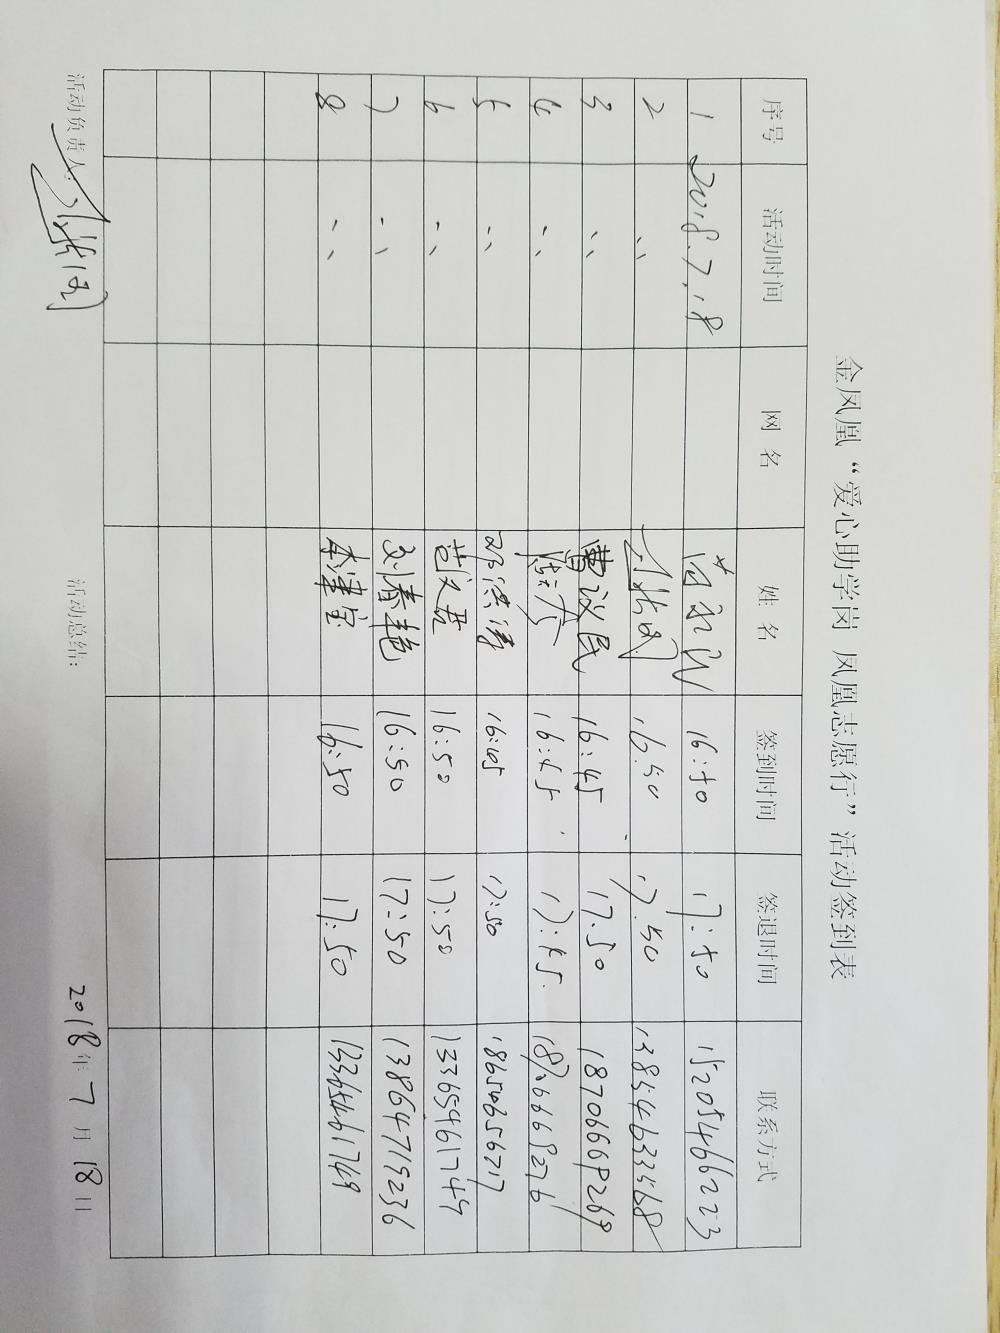 金凤凰“爱心助学岗 凤凰志愿行”活动签到表
序号 活动时间 网 名 姓 名 签到时间 签退时间 联系方式
1 2018.7.18 16:50 17:50 15205466223
2 〃 16:50 17:50 13854633568
3 〃 曹议民 16:45 17.50 18706669269
4 〃 16:45 17:45 18706668276
5 〃 16:45 17:50 18654656717
6 〃 16:50 17:50 13365461749
7 〃 刘春艳 16:50 17:50 13864719236
8 〃 李津宝 16:50 17:50 13365461769
活动负责人: 活动总结: 2018年 7 月 18日